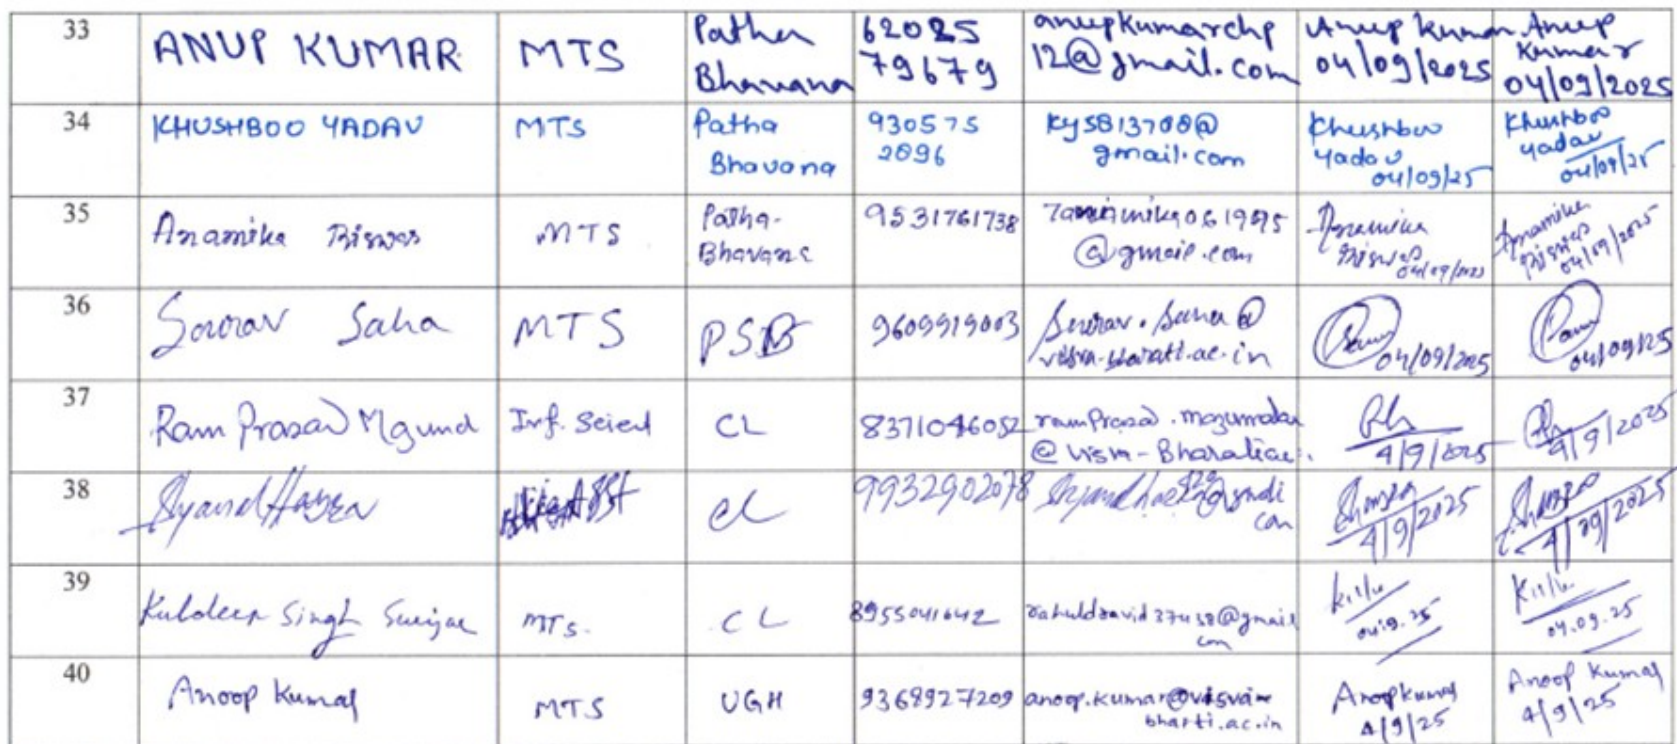 33 ANUP KUMAR MTS Patha Bhavana 62025 79679 anupkumarchp 12@gmail.com Anup Kumar 04/09/2025 Anup Kumar 04/09/2025
34 KHUSHBOO YADAV MTS Patha Bhavana 930575 2096 ky5813708@ gmail.com Khushboo Yadav 04/09/25 Khushboo Yadav 04/09/25
35 Anamika Biswas MTS Patha- Bhavana 9531761738 @gmail.com Anamika Biswas 04/09/2025 Anamika Biswas 04/09/2025
36 Sourav Saha MTS PSB 9609919003 Sourav.Saha@ visva-bharati.ac.in 04/09/2025 04/09/25
37 Ram Prasad CL 8371046052 @ 4/9/2025 4/9/2025
38 CL 9932902078 4/9/2025 4/09/2025
39 Kuldeep Singh MTS. CL 8955041642 04.09.25
40 Anoop Kumar MTS UGH 9368927209 anoop.kumar@visva bharti.ac.in Anoop Kumar 4/9/25 Anoop Kumar 4/9/25